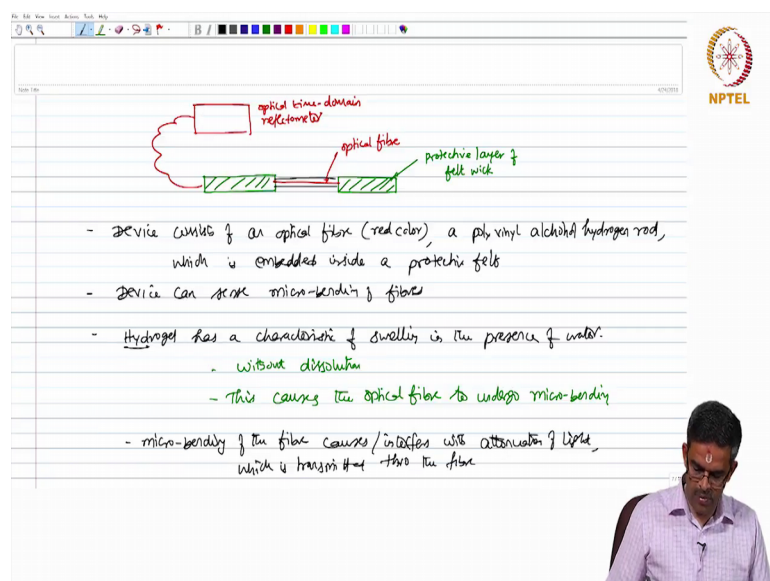 File Edit View Insert Actions Tools Help
B I
NPTEL
Note Title
optical time-domain
reflectometer
optical fibre
protective layer of
felt wick
- Device consists of an optical fibre (red color), a poly vinyl alchohol hydrogen rod,
which is embedded inside a protective felt
- Device can sense micro-bending of fibres
- Hydrogel has a characteristic of swelling in the presence of water.
. without dissolution
- This causes the optical fibre to undergo micro-bending
- micro-bending of the fibre causes/interfers with attenuation of light,
which is transmitted thro the fibre